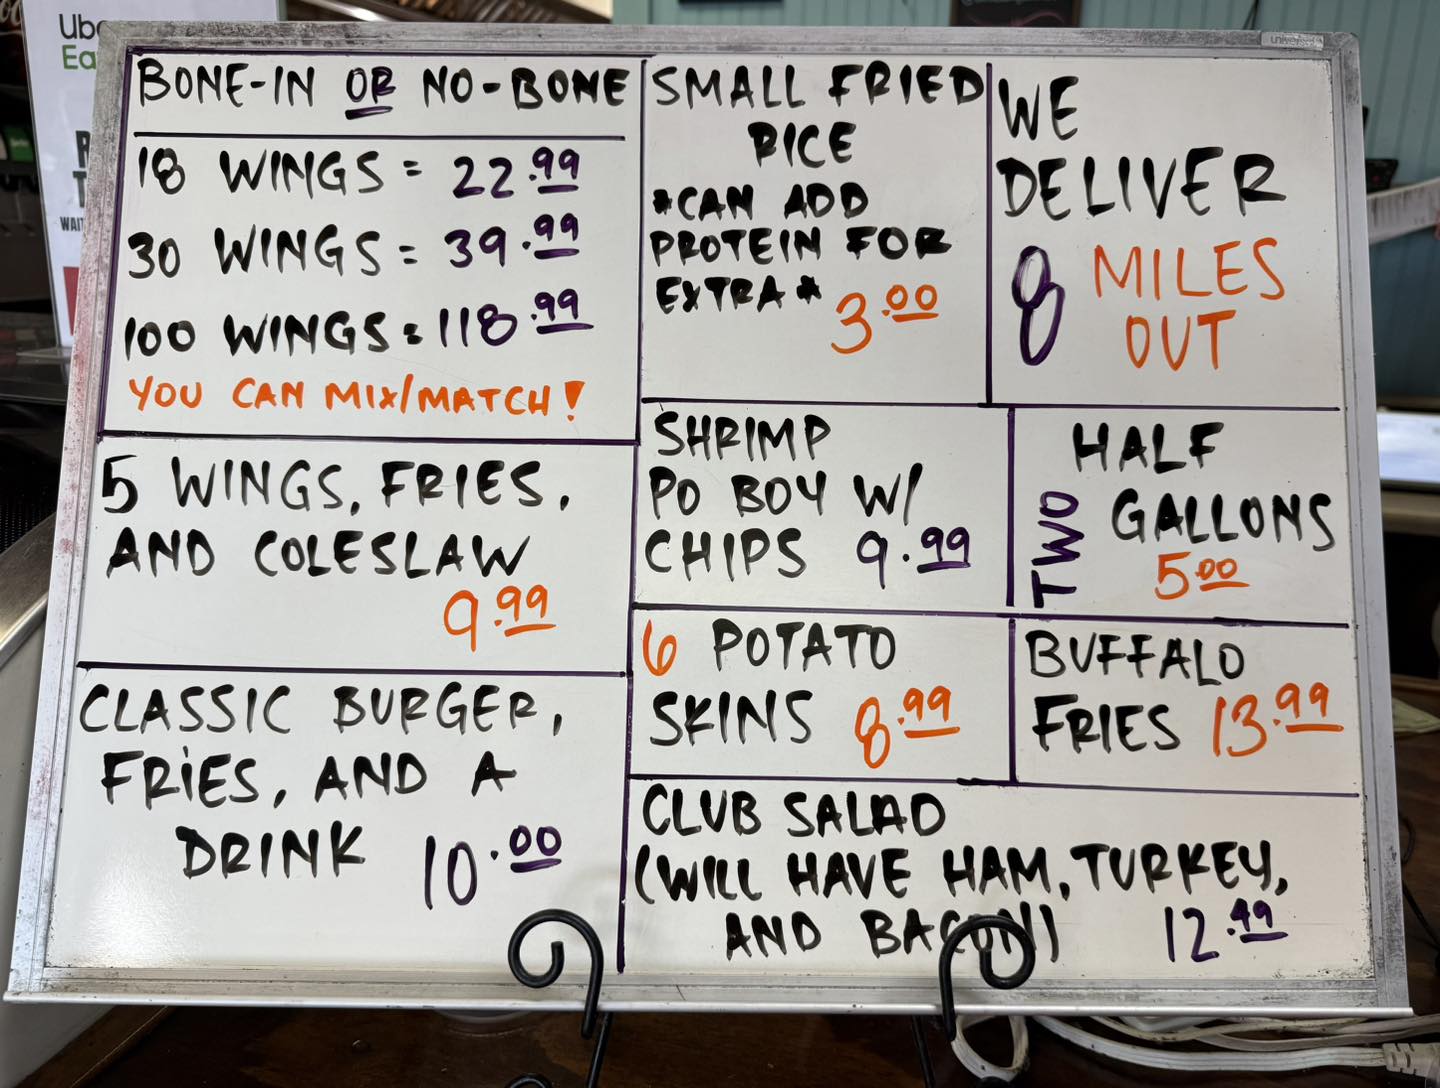 Ube
Ea
WAIT
BONE-IN OR NO-BONE
18 WINGS = 22.99
30 WINGS = 39.99
100 WINGS = 118.99
YOU CAN MIX/MATCH!
5 WINGS, FRIES,
AND COLESLAW
9.99
CLASSIC BURGER,
FRIES, AND A
DRINK 10.00
SMALL FRIED
RICE
*CAN ADD
PROTEIN FOR
EXTRA* 3.00
SHRIMP
PO BOY W/
CHIPS 9.99
6 POTATO
SKINS 8.99
WE
DELIVER
8 MILES
OUT
TWO HALF
GALLONS
5.00
BUFFALO
FRIES 13.99
CLUB SALAD
(WILL HAVE HAM, TURKEY,
AND BACON) 12.49